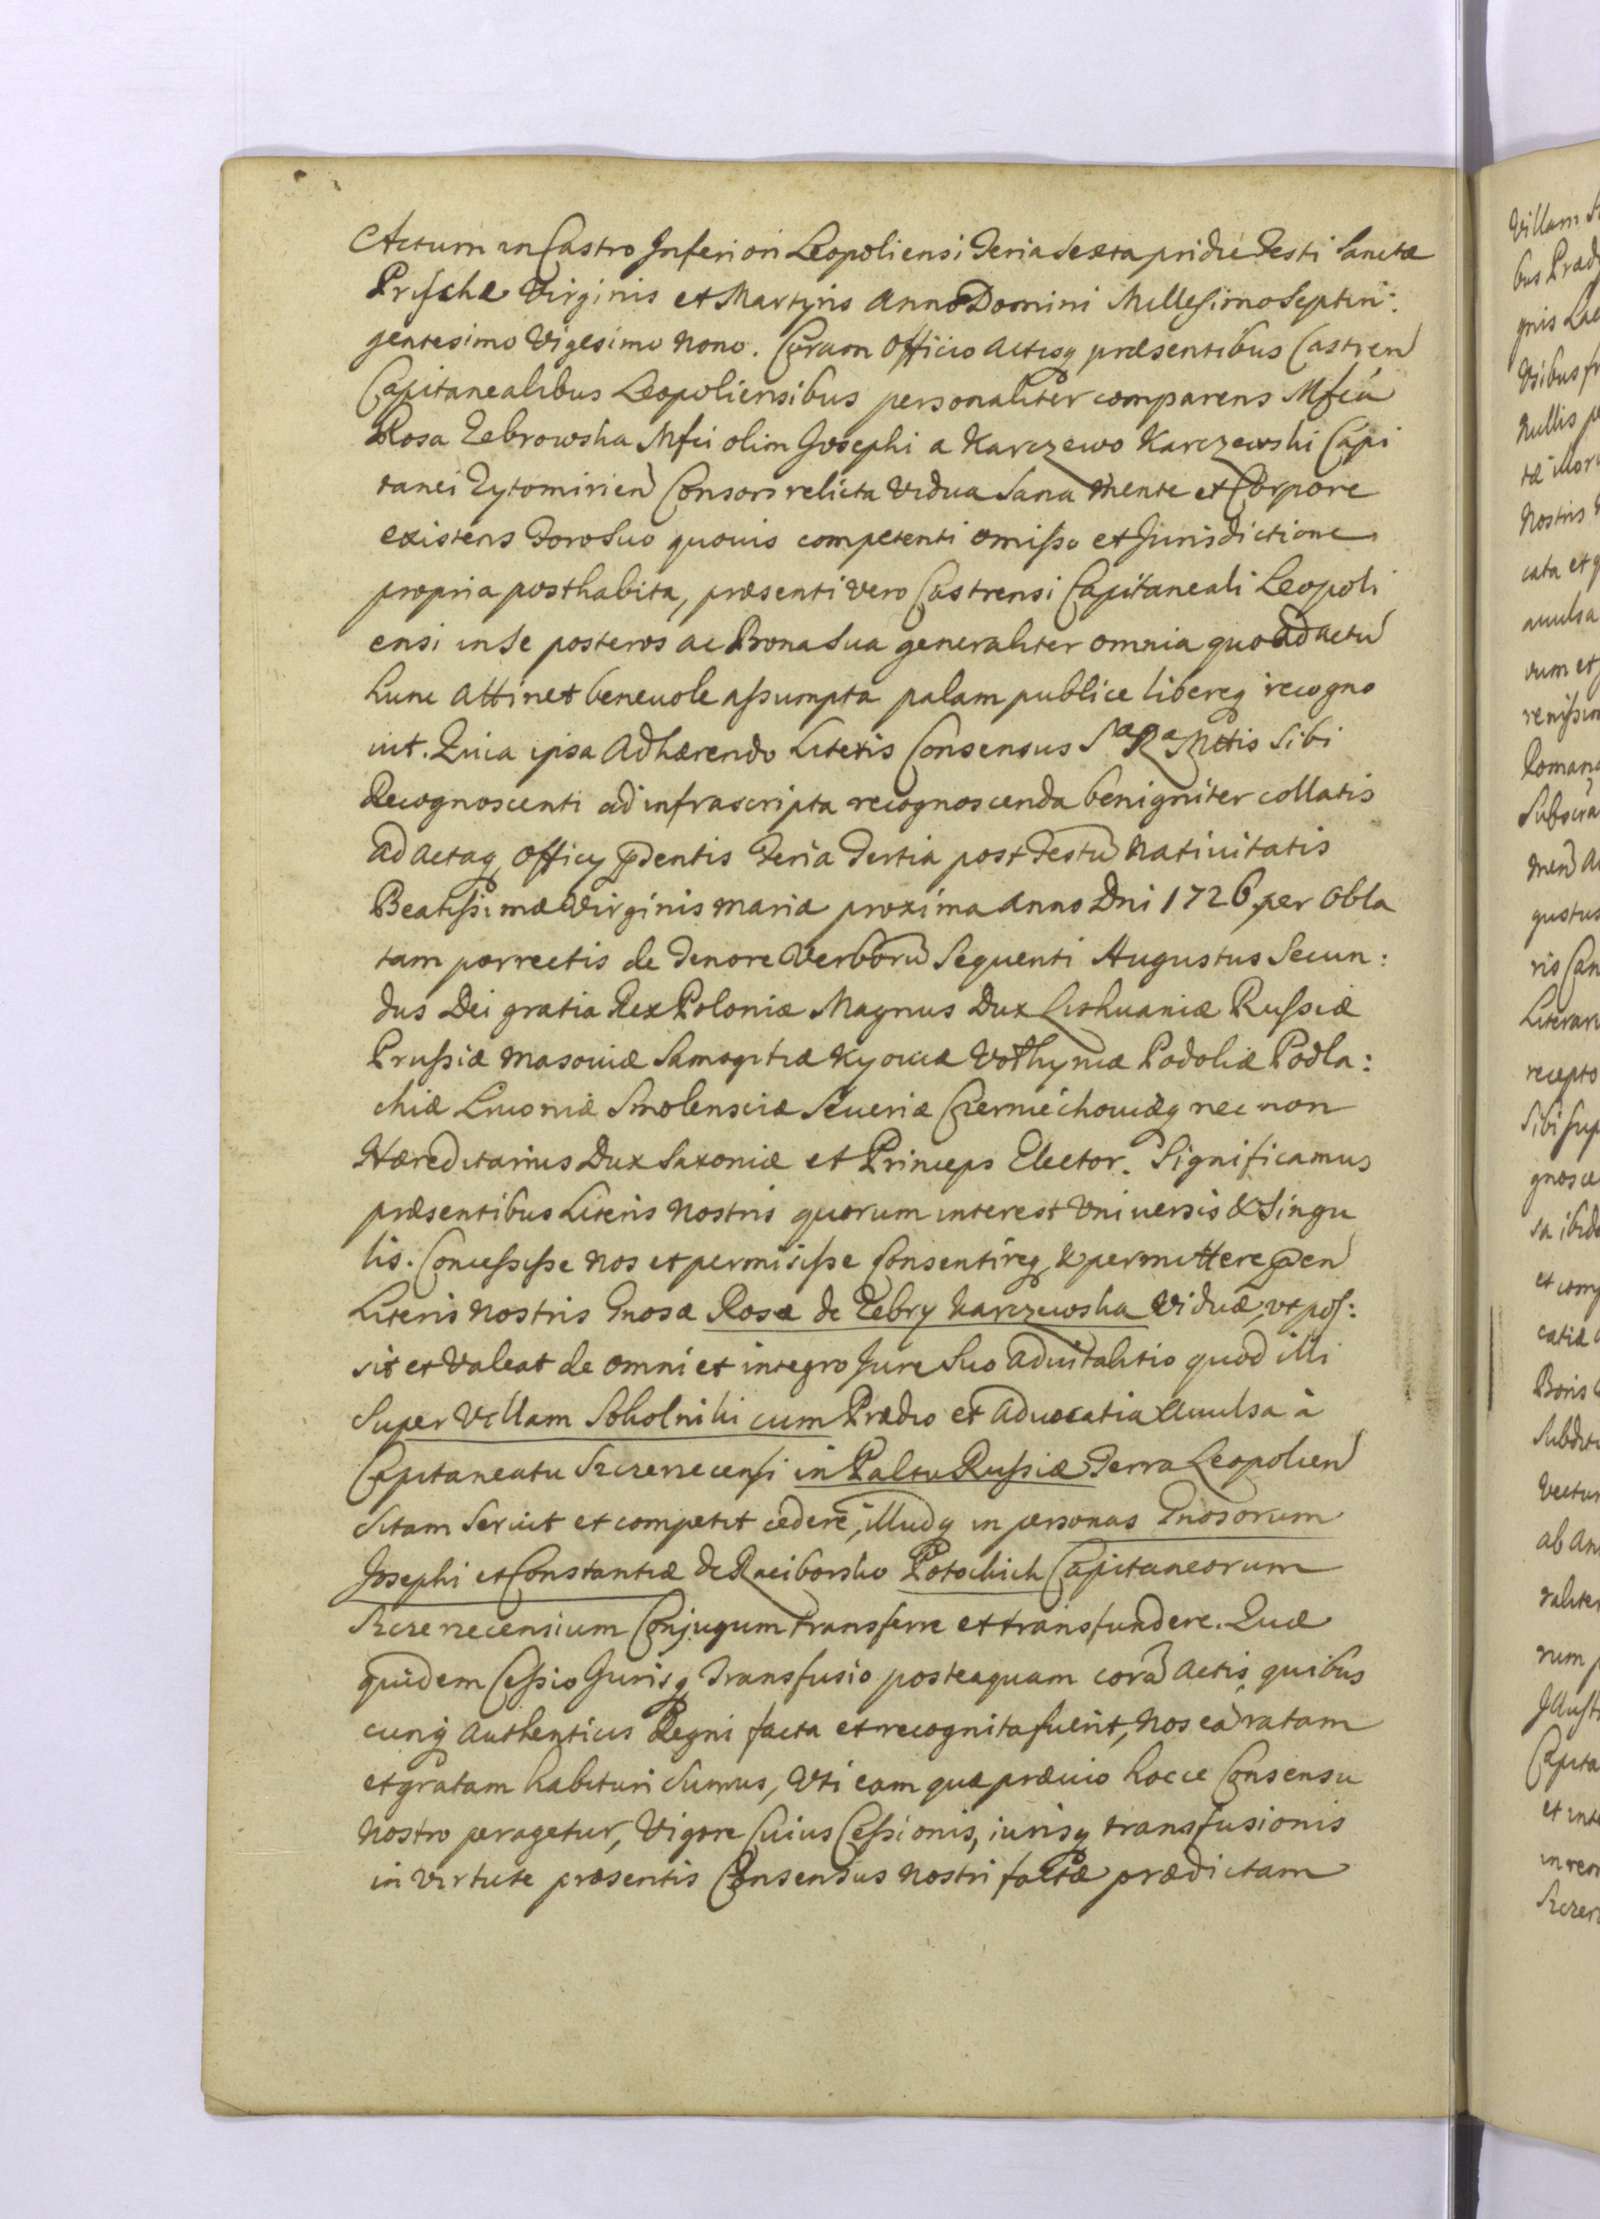 Actum in Castro Inferiori Leopoliensi Feria Sexta pridie Festi Sanctæ
Prischæ Virginis et Martyris Anno Domini Millesimo Septin:
gentesimo Vigesimo Nono. Coram Officio Actisq præsentibus Castren
Capitanealibus Leopoliensibus personaliter comparens Mfca
Rosa Zebrowska Mfci olim Josephi a Karczewo Karczewski Capi
tanei Zytomirien Consors relicta Vidua Sana Mente et Corpore
existens Foro Suo quovis competenti omisso et Jurisdictione
propria posthabita, præsenti vero Castrensi Capitaneali Leopoli
ensi in Se posteros ac Bona Sua generaliter omnia quo ad actu
hunc attinet benevole assumpta palam publice libereq recogno
vit. Quia ipsa Adhærendo Literis Consensus Sa Ra Mttis Sibi
Recognoscenti ad infrascripta recognoscenda benigniter collatis
ad actaq Officy pdentis Feria Tertia post Festu Nativitatis
Beatissimæ Virginis Mariæ proxima Anno Dni 1726 per Obla
tam porrectis de Tenore Verboru Sequenti Augustus Secun:
dus Dei gratia Rex Poloniæ Magnus Dux Lithuaniæ Russiæ
Prussiæ Masoviæ Samogitiæ Kyoviæ Volhyniæ Podoliæ Podla:
chiæ Livoniæ Smolensciæ Severiæ Czerniechoviæq nec non
Hæreditarius Dux Saxoniæ et Princeps Elector. Significamus
præsentibus Literis Nostris quorum interest Universis & Singu
lis. Concessisse Nos et permisisse Consentireq & permittere pen
Literis Nostris Gnosæ Rosæ de Zebry Karczewska Viduæ, ut pos:
sit et Valeat de omni et integro Jure Suo advitalitio quod illi
Super Villam Sokolniki cum Prædio et advocatia Avulsa à
Capitaneatu Szczerzecensi in Paltu Russiæ Terra Leopolien
Sitam Servit et competit cedere, illudq in personas Gnosorum
Josephi et Constantiæ de Raciborsko Potockich Capitaneorum
Szczerzecensium Conjugum transferre et transfundere. Quæ
quidem Cessio Jurisq Transfusio posteaquam cora Actis quibus
cunq Authenticis Regni facta et recognita fuerit, Nos ea ratam
et gratam habituri Sumus, Uti eam quæ prævio hocce Consensu
Nostro peragetur, Vigore Cuius Cessionis, iurisq transfusionis
in Virtute præsentis Consensus Nostri factæ prædictam